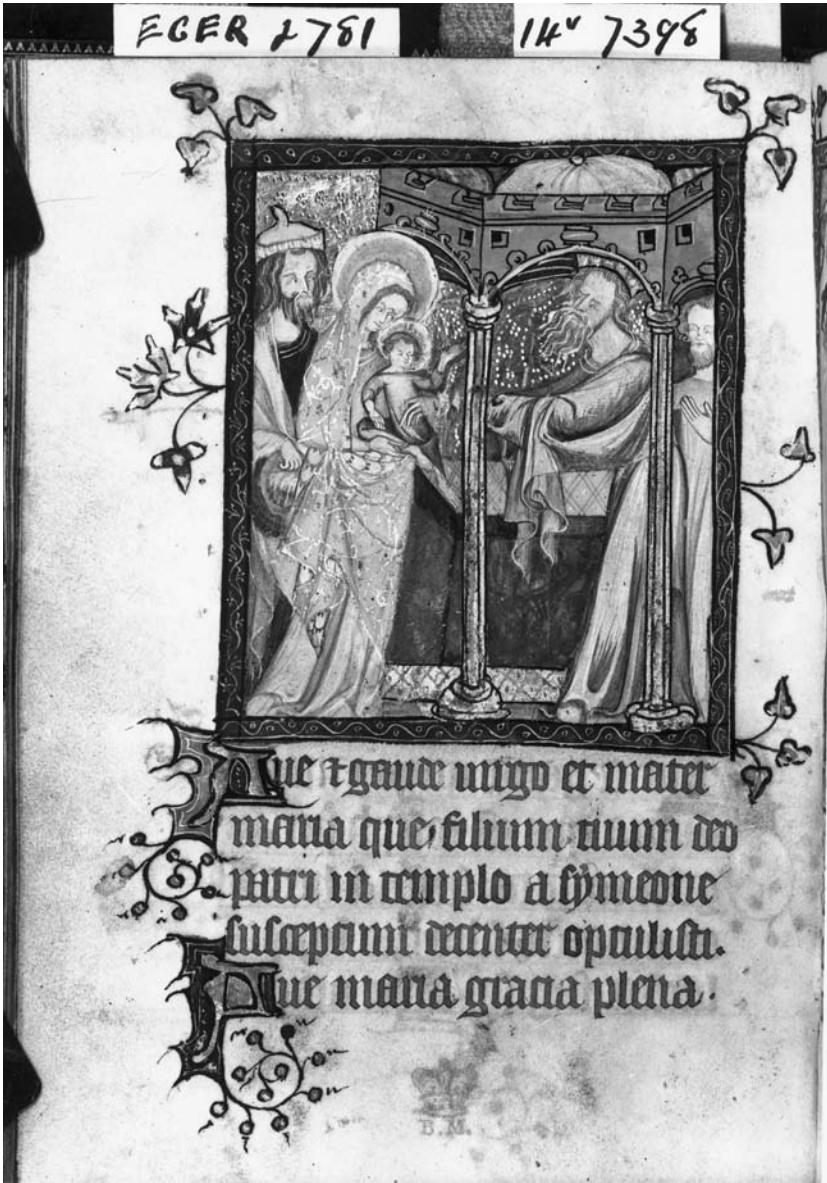 EGER 2781
14v 7398
Aue ⁊ gaude uirgo et mater
maria que filium tuum deo
patri in templo a symeone
susceptum decenter optulisti.
Aue maria gracia plena.
B.M.